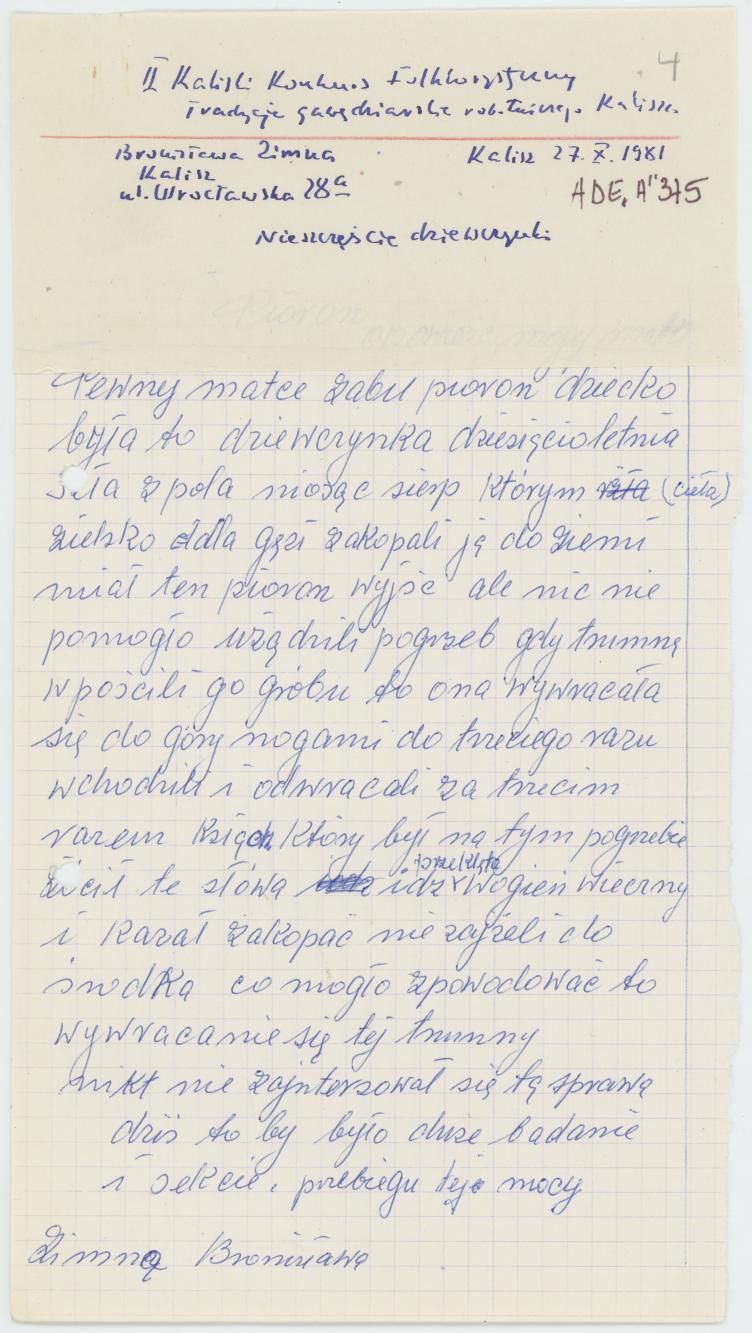 4
II Kaliski Konkurs Folklorystyczny
Tradycje gawędziarskie robotniczego Kalisza
Bronisława Zimna Kalisz 27.X.1981
Kalisz
ul. Wrocławska 28a
ADE, A"375
Nieszczęście dziewczynki
Pioron
opowieść mojy matki
Pewny matce zabił pioron dziecko
była to dziewczynka dziesięcioletnia
szła z pola niosąc sierp którym rżła (cieła)
zielsko dla gęsi zakopali ją do ziemi
miał ten pioron wyjść ale nic nie
pomogło użądzili pogrzeb gdy trumną
wpościli go gróbu to ona wywracała
się do góry nogami do trzeciego razu
wchodzili i odwracali za trzecim
razem ksiądz który był na tym pogrzebie
żócił te słowa idz przeklęta w ogień wieczny
i kazał zakopać nie zajżeli do
środka co mogło zpowodować to
wywracanie się tej trumny
nikt nie zajnterzował się tą sprawą
dziś to by było duże badanie
i sekcie, przebiegu tej mocy
Zimna Bronisława